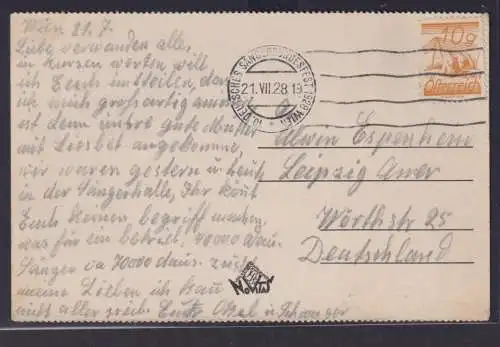 Wien 21.7.
Liebe verwanden alle,
in kurzen worten will
ich Euch mitteilen, das
ich mich großartig
ist denn unsre gute Mutter
mit Liesbet angekomme,
wir waren gestern u heute
in der Sängerhalle, Ihr könt
Euch keinen begriff machen
was für ein betrieb,
Sänger ca 70000
meine Lieben ich kau
nicht aller
10. DEUTSCHES SÄNGERBUNDESFEST 1928 WIEN
21.VII.28 19
10 g
Österreich
Alwin Espenhein
Leipzig
Wörthstr 25
Deutschland